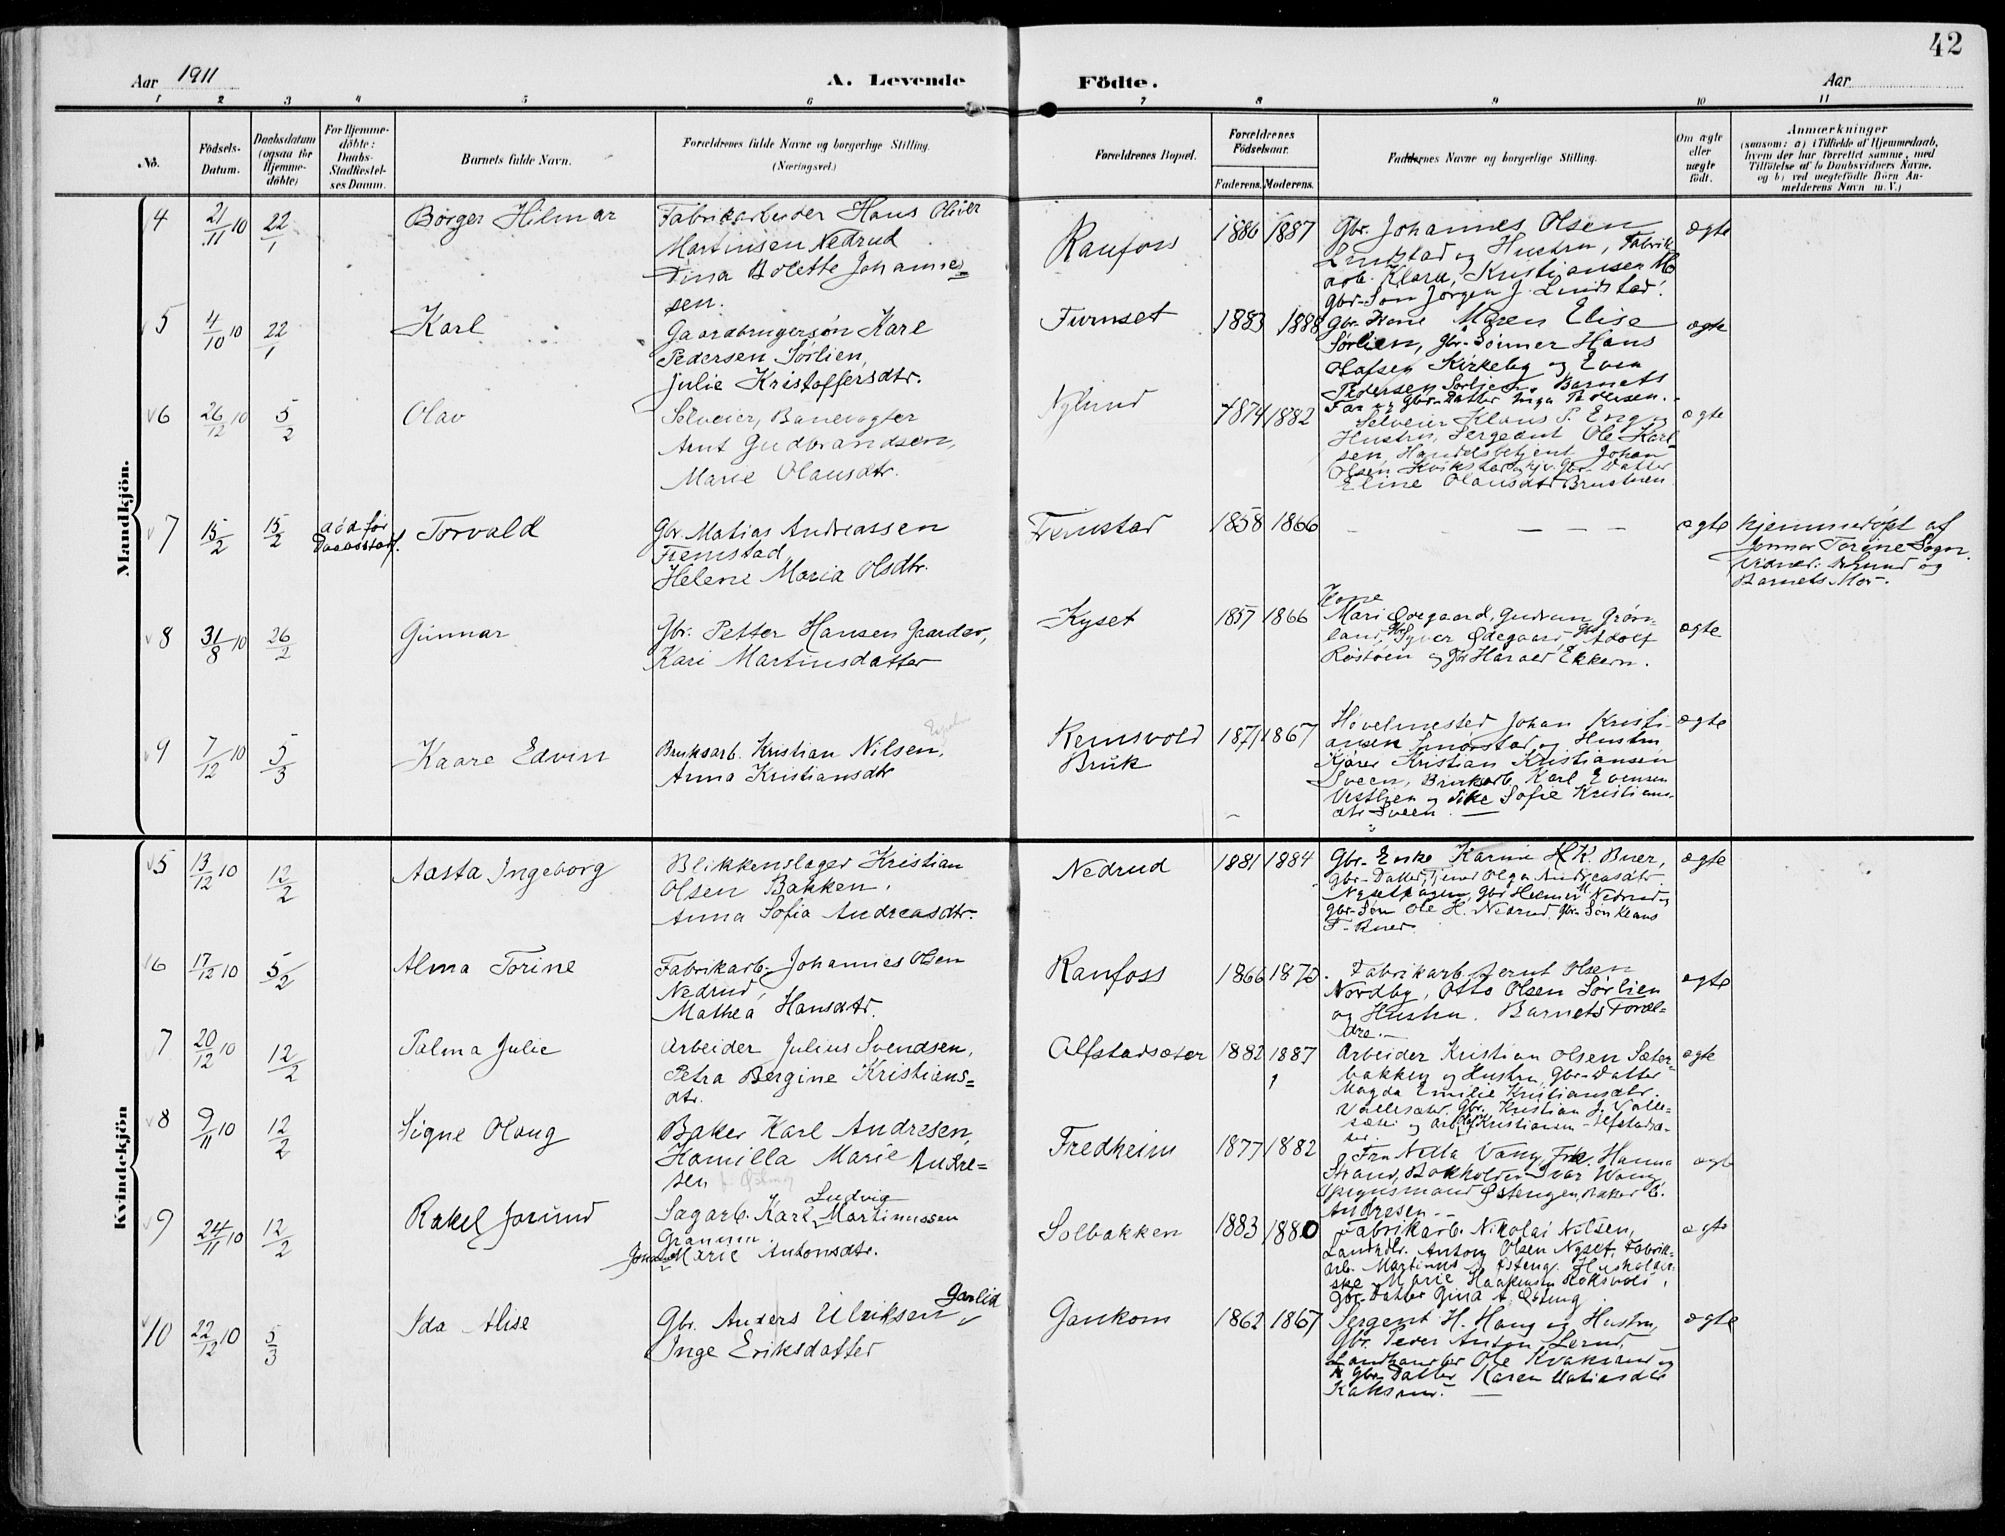 42
Aar 1911
A. Levende
Födte.
Aar
1 2 3 4 5 6 7 8 9 10 11
No.
Födsels-
Datum.
Daabsdatum
(ogsaa for
Hjemme-
döbte)
For Hjemme-
döbte:
Daabs-
Stadfæstel-
ses Datum.
Barnets fulde Navn.
Forældrenes fulde Navne og borgerlige Stilling.
(Næringsvei.)
Forældrenes Bopæl.
Forældrenes
Födselsaar.
Faderens.
Moderens.
Faddernes Navne og borgerlige Stilling.
Om ægte
eller
uægte
födt.
Anmærkninger
(saasom: a) i Tilfælde af Hjemmedaab,
hvem der har forrettet samme, med
Tilföielse af to Daabsvidners Navne.
og b) ved uægtefödte Börn An-
melderens Navn m. V.)
Mandkjön.
4
21/11 10
22/1
Børger Hilmar
Fabrikarbeider Hans Oliver
Martinsen Nedrud
Tina Bolette Johanne-
sen.
Raufoss
1886
1887
Gbr. Johannes Olsen
Lindstad og Hustru, Fabrik-
arb. Klara Kristiansen
Gbr-Søn Jörgen J. Lindstad.
ægte
5
4/10 10
22/1
Karl
Gaardbrugersøn Karl
Pedersen Sørlien,
Julie Kristoffersdtr.
Furuset
1883
1888
Gbr. Kone Maren Elise
Sørlien, Gbr-Sønner Hans
Olafsen Kirkeby og Even
Pedersen Sørlien. Barnets
Far og Gbr-Datter Inga Pedersen.
ægte
6
26/12 10
5/2
Olav
Selveier, Banevogter
Arnt Gudbrandsen,
Marie Olausdtr.
Nylund
1874
1882
Selveier Klaus P. Eng og
Hustru, Sergeant Ole Karl-
sen, Handelsbetjent Johan
Olsen Gbr. Datter
Eline Olausdtr
ægte
7
15/2
15/2
død før
Daabsstadf.
Torvald
Gbr. Matias Andreassen
Fremstad
Helene Maria Olsdtr.
Fremstad
1858
1866
— — — —
ægte
hjemmedøpt af
Jonmor Torine Sogn.
Vidner: og
Barnets Mor.
8
31/8 10
26/2
Gunnar
Gbr. Petter Hansen Gaarder,
Kari Martinsdatter
Kyset
1857
1866
Kone
Mari Ødegaard, Gudrun Grøn-
land, Gbr Syver Ødegaard, Gbs Adolf
Røstøen og Gbr Harald Ekkern.
ægte
9
7/12 10
5/3
Kaare Edvin
Bruksarb. Kristian Nilsen,
Anna Kristiansdtr
Reinsvold
Bruk
1871
1867
Høvelmester Johan Kristi-
ansen Smørstad og Hustru
Kjører Kristian Kristiansen
Sveen, Bruksarb. Karl Evensen
Vestlien og Pike Sofie Kristians-
dtr Sveen. —
ægte
Kvindekjön
5
13/12 10
12/2
Aasta Ingeborg
Blikkenslager Kristian
Olsen Bakken.
Anna Sofia Andreasdtr.
Nedrud
1881
1884
Gbr- Enke Karine H.K. Buer,
Gbr- Datter, Tjener Olga Andreasdtr
Nysethagen, Gbr Helmer M. Nedrud og
Gbr-Søn Ole H. Nedrud, Gbr- Søn Klaus
F- Buer.
ægte
6
17/12 10
5/2
Alma Torine
Fabrikarb. Johannes Olsen
Nedrud,
Mathea Hansdtr.
Raufoss
1866
1870
Fabrikarb. Bernt Olsen
Nordby, Otto Olsen Sørlien
og Hustru. Barnets Foræl-
dre. —
ægte
7
20/12 10
12/2
Palma Julie
Arbeider Julius Svendsen,
Petra Bergine Kristians-
dtr.
Alfstadsæter
1882
1887
Arbeider Kristian Olsen Sæter-
bakken og Hustru, Gbr- Datter
Magda Emilie Kristiansdtr.
Vallesæter. Gbr. Kristian J. Valle-
sæter og Arb Kristiansen Alfstadsæ-
ter.
ægte
8
9/11 10
12/2
Signe Olaug
Baker Karl Andresen,
Kamilla Marie Andre-
sen
Fredheim
1877
1882
Fru Netta Vang, Frk. Hanna
Strand, Bokholder Ivar Wang
Opsynsmand Østengen, Baker E.
Andresen. —
ægte
9
24/11 10
12/2
Rakel Jorund
Sagarb. Karl Ludvig Martinussen
Granum.
Marie Antonsdtr.
Solbakken
1883
1880
Fabrikarb. Nikolai Nilsen,
Landhdlr. Anton Olsen Nyset, Fabrik-
arb. Martinus Østeng. Husholder-
ske Marie Haakensen Roksvold,
Gbr- Datter Gina A. Østeng.
ægte
10
22/12 10
5/3
Ida Alise
Gbr. Anders Ulriksen Garlid
Inge Eriksdatter
Gaukom
1862
1867
Sergent H. Haug og Hustru,
Gbr. Peder Anton Lerud,
Landhandler Ole Kvaksrud og
Gbr- Datter Karen Matiasdtr
ægte